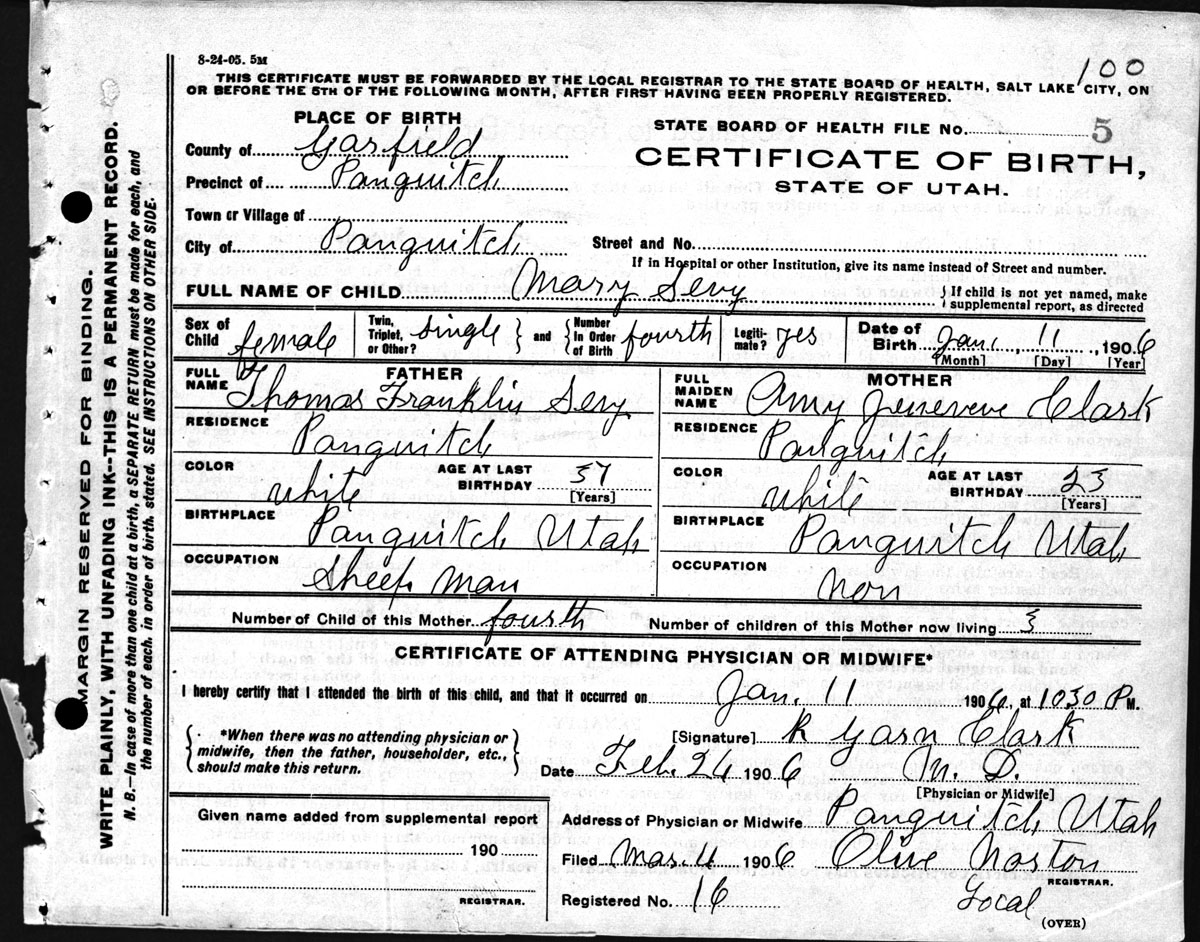 8-24-05. 5M
100
THIS CERTIFICATE MUST BE FORWARDED BY THE LOCAL REGISTRAR TO THE STATE BOARD OF HEALTH, SALT LAKE CITY, ON
OR BEFORE THE 5TH OF THE FOLLOWING MONTH, AFTER FIRST HAVING BEEN PROPERLY REGISTERED.
PLACE OF BIRTH
STATE BOARD OF HEALTH FILE No. 5
County of Garfield
CERTIFICATE OF BIRTH,
Precinct of Panguitch
STATE OF UTAH.
Town or Village of
City of Panguitch
Street and No.
If in Hospital or other Institution, give its name instead of Street and number.
FULL NAME OF CHILD Mary Sevy
If child is not yet named, make
supplemental report, as directed
Sex of Child female
Twin, Triplet, or Other? single
and
Number In Order of Birth fourth
Legiti-mate? yes
Date of Birth Jan. 11, 1906
[Month] [Day] [Year]
FATHER
FULL NAME Thomas Franklin Sevy
RESIDENCE Panguitch
COLOR white
AGE AT LAST BIRTHDAY 37
[Years]
BIRTHPLACE Panguitch Utah
OCCUPATION Sheep man
MOTHER
FULL MAIDEN NAME Amy Jeneveve Clark
RESIDENCE Panguitch
COLOR white
AGE AT LAST BIRTHDAY 23
[Years]
BIRTHPLACE Panguitch Utah
OCCUPATION non
Number of Child of this Mother fourth
Number of children of this Mother now living 3
CERTIFICATE OF ATTENDING PHYSICIAN OR MIDWIFE*
I hereby certify that I attended the birth of this child, and that it occurred on Jan. 11 1906, at 1030 P M.
*When there was no attending physician or
midwife, then the father, householder, etc.,
should make this return.
[Signature] R Garn Clark
Date Feb. 24 1906 M. D.
[Physician or Midwife]
Given name added from supplemental report
190
REGISTRAR.
Address of Physician or Midwife Panguitch Utah
Filed Mar. 4 1906 Olive Norton
REGISTRAR.
Registered No. 16
Local
(OVER)
MARGIN RESERVED FOR BINDING.
WRITE PLAINLY, WITH UNFADING INK--THIS IS A PERMANENT RECORD.
N. B.—In case of more than one child at a birth, a SEPARATE RETURN must be made for each, and
the number of each, in order of birth, stated. SEE INSTRUCTIONS ON OTHER SIDE.